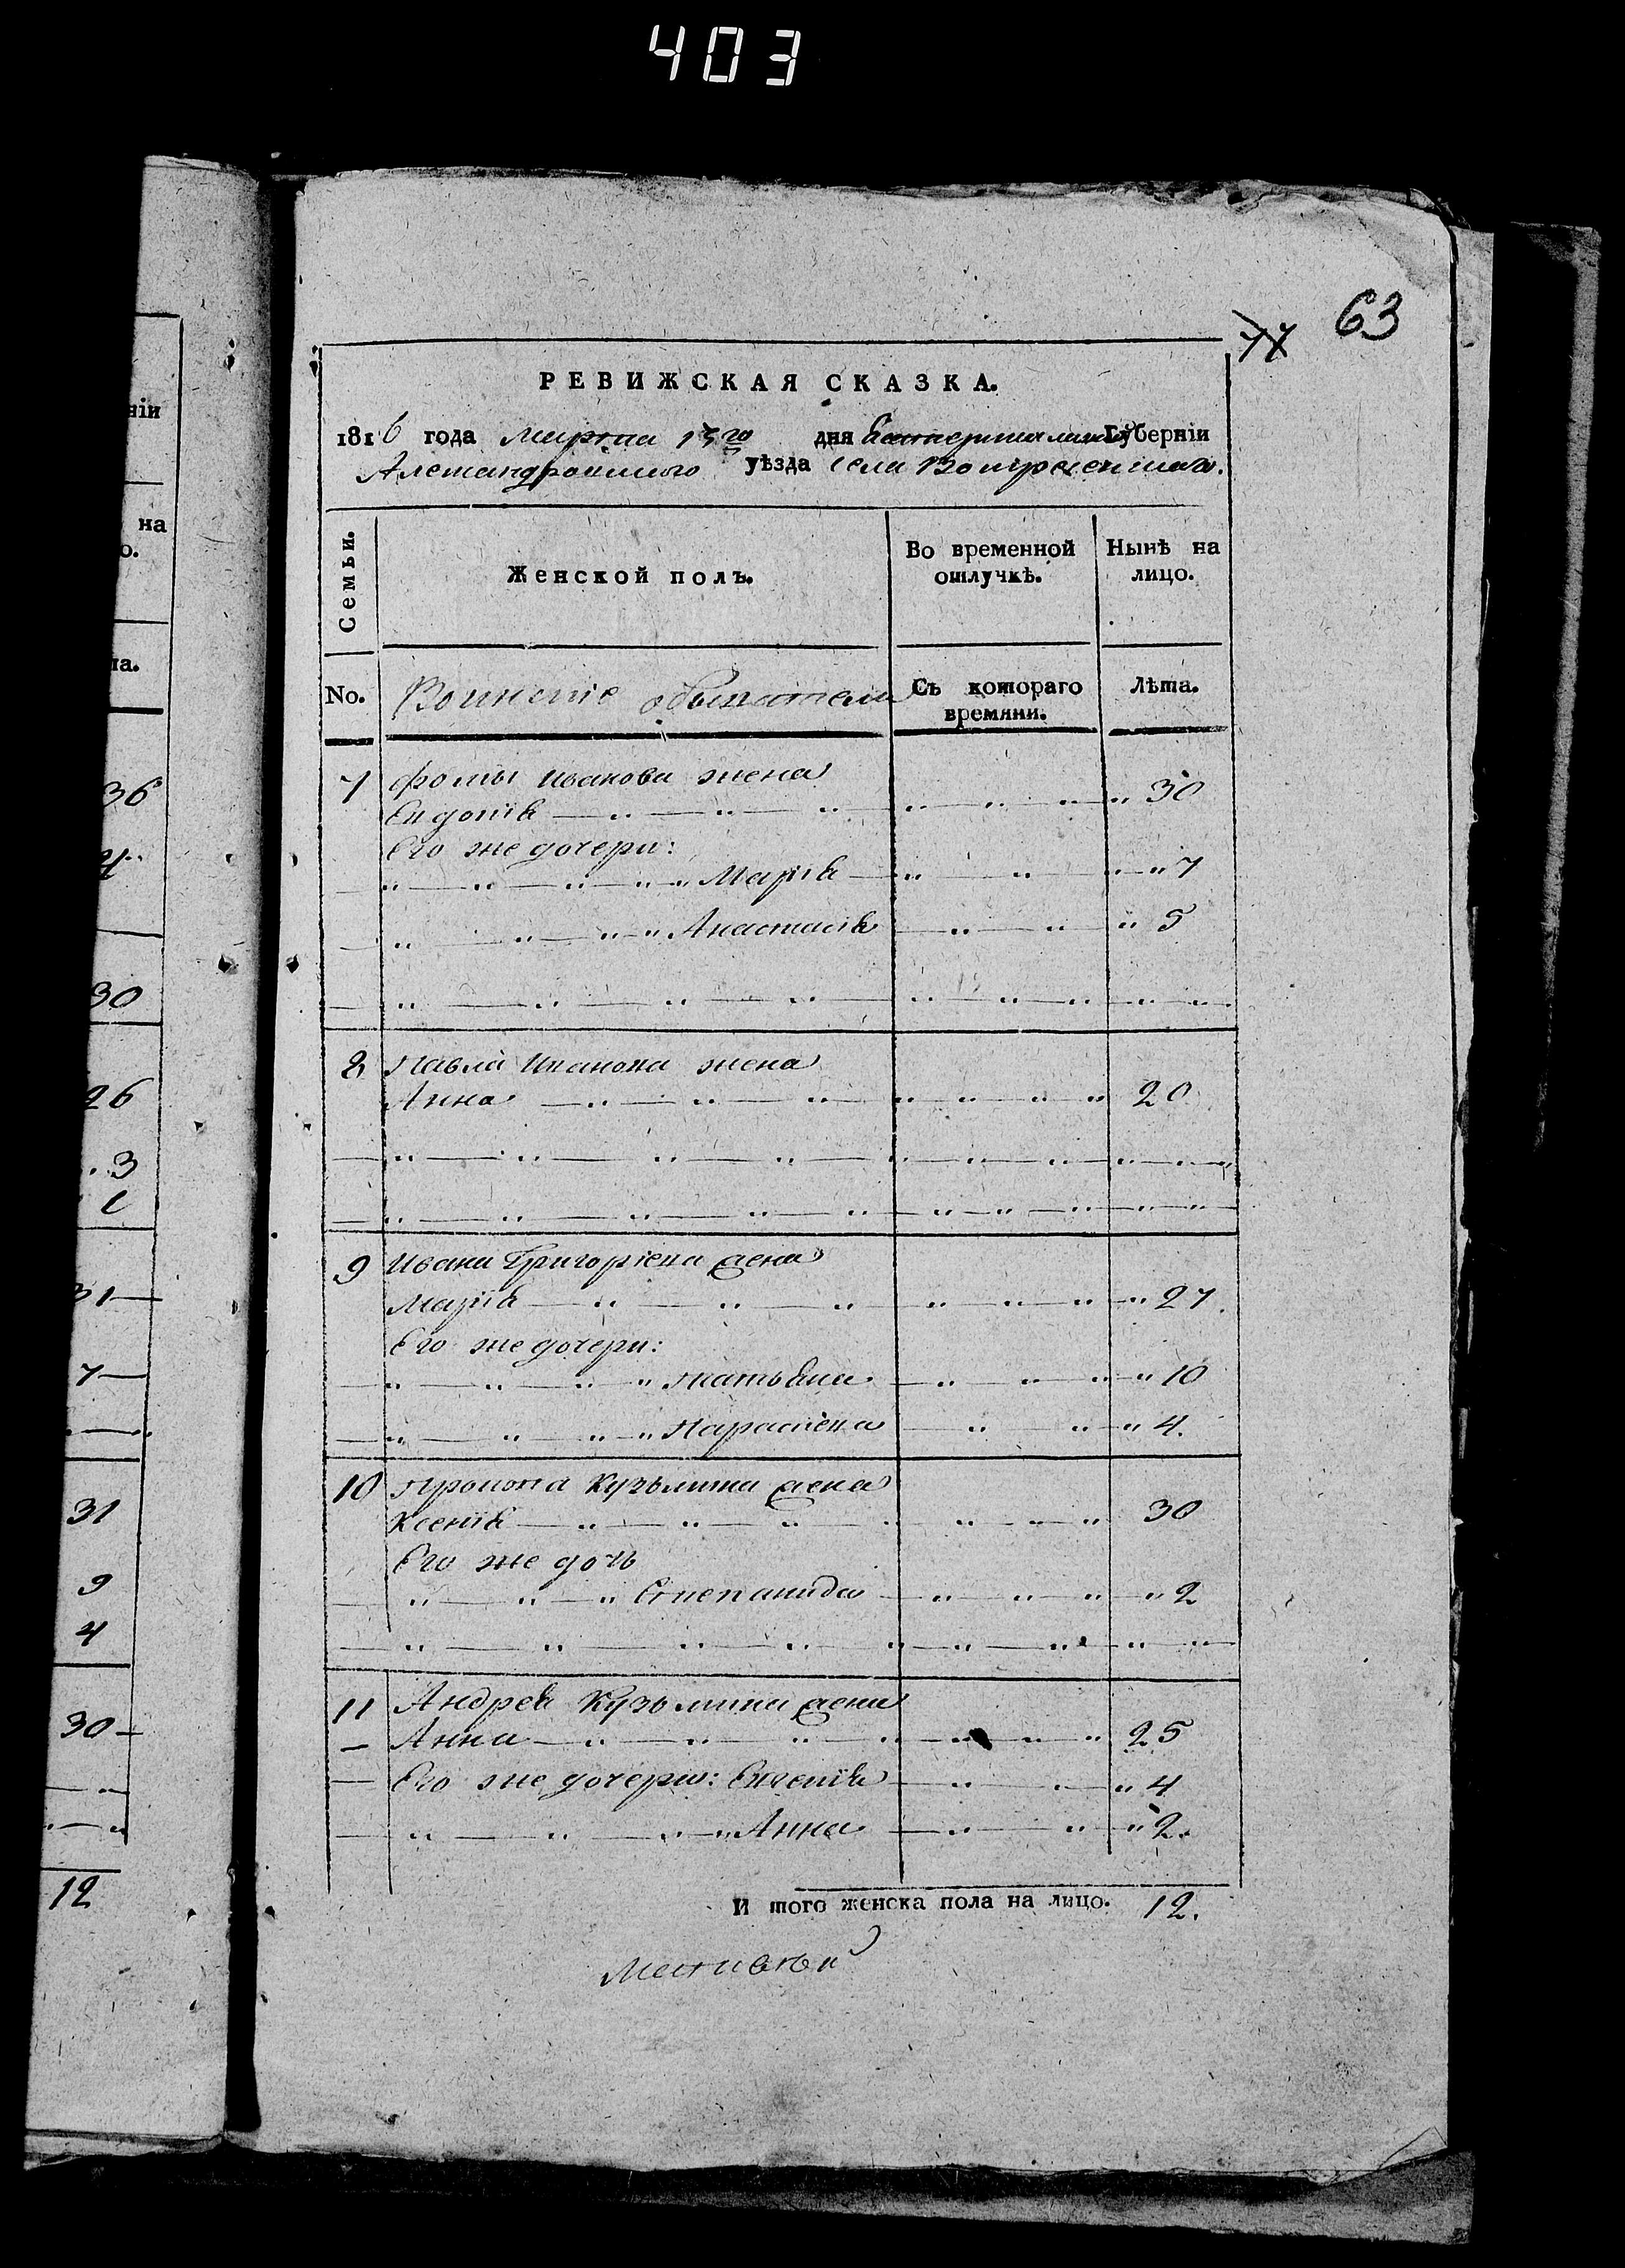 403
63
77
РЕВИЖСКАЯ СКАЗКА.
1816 года марта 15го дня Екатеринославской Губерніи
Александровскаго уѣзда села Воскресенскаго.
Семьи.
Женской полъ.
Во временной отлучкѣ.
Нынѣ на лицо.
No.
Воинскіе обыватели
Съ котораго времяни.
Лѣта.
7 Фомы Иванова жена
Евдокія 30
Его же дочери:
Марія 7
Анастасія 5
8 Павла Иванова жена
Анна 20
9 Ивана Григоріева жена
Марія 27.
Его же дочери:
Татьяна 10
Парасковія 4.
10 Прокопа Кузьмина жена
Ксенія 30
Его же дочь
Степанида 2
11 Андрея Кузьмина жена
Анна 25
Его же дочери: Евгенія 4
Анна 2.
И того женска пола на лицо. 12.
ніи
на
о.
та.
36
30
26
3
1
31
7
31
9
4
30
12